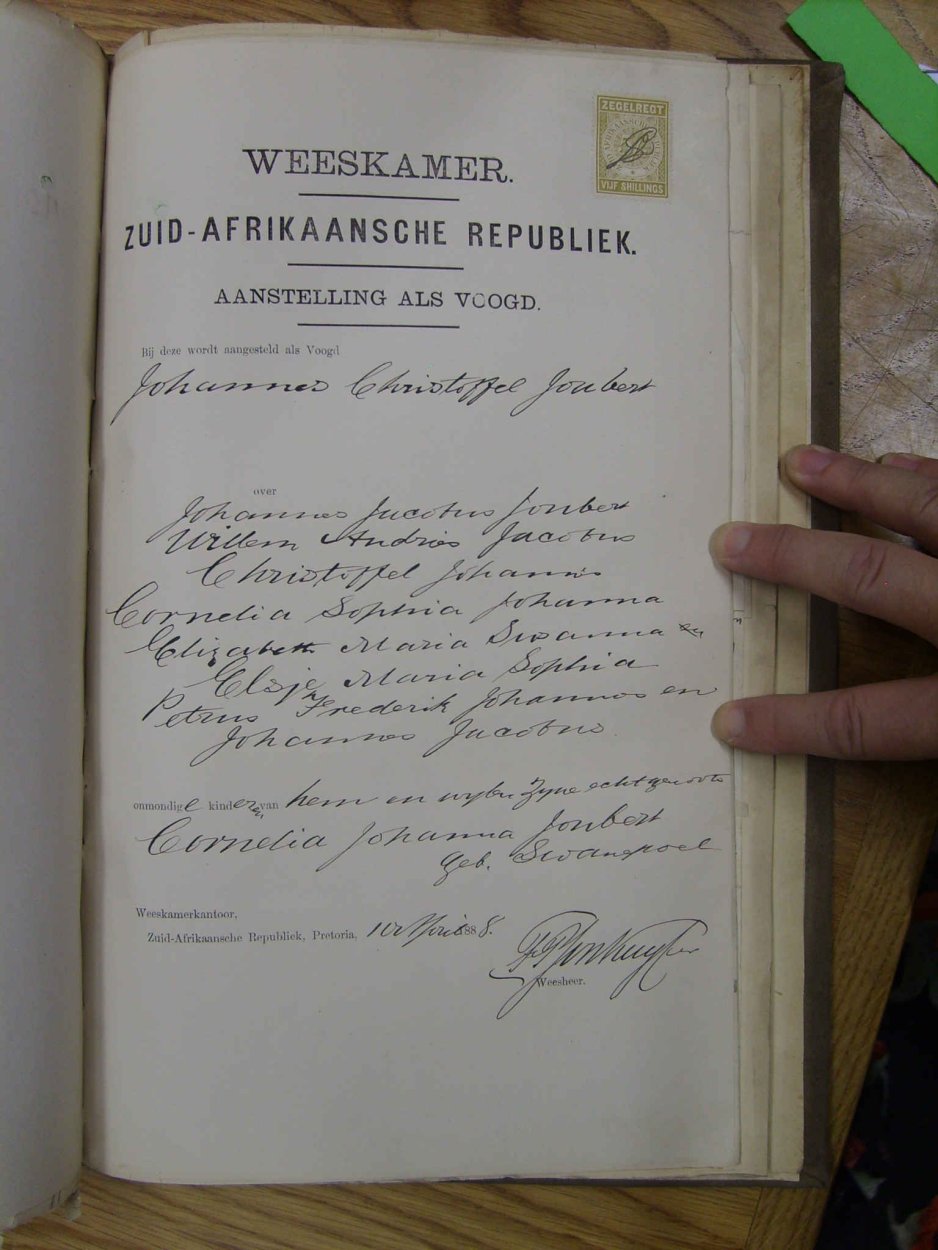 ZEGELREGT
VIJF SHILLINGS
WEESKAMER.
ZUID-AFRIKAANSCHE REPUBLIEK.
AANSTELLING ALS VOOGD.
Bij deze wordt aangesteld als Voogd
Johannes Christoffel Joubert
over
Johannes Jacobus Joubert
Willem Andries Jacobus
Christoffel Johannis
Cornelia Sophia Johanna
Elizabeth Maria Swanna
Elsje Maria Sophia
Petrus Frederik Johannes en
Johannes Jacobus
onmondige kinderen van hem en wylen Zyne echtgenoote
Cornelia Johanna Joubert
geb. Swanepoel
Weeskamerkantoor,
Zuid-Afrikaansche Republiek, Pretoria, 10 April 1888.
Weesheer.